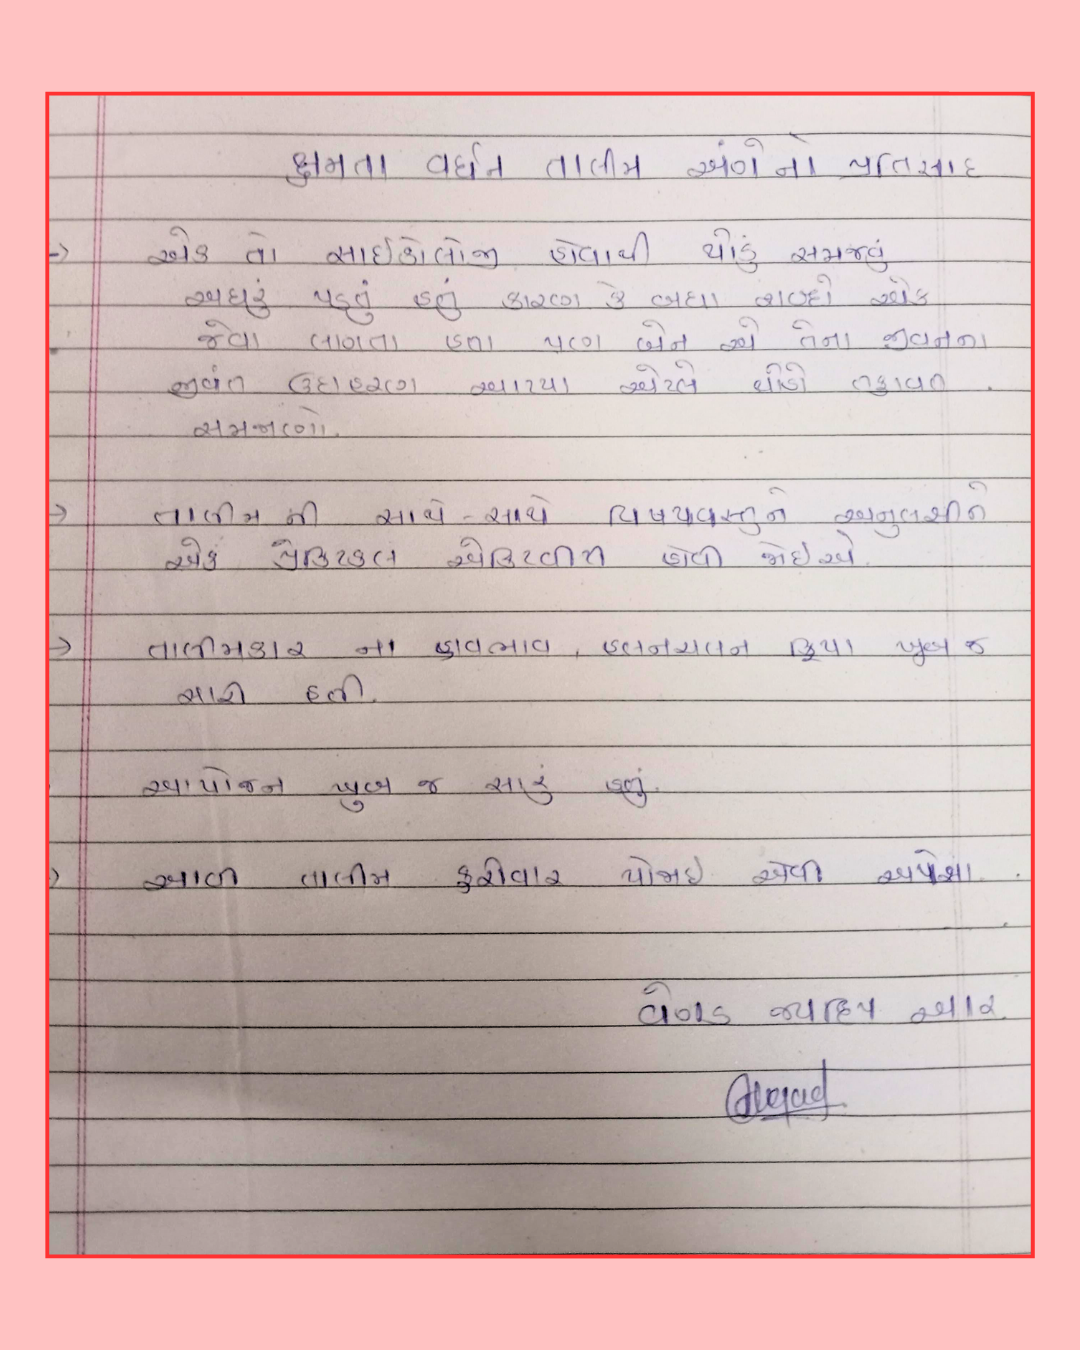 ક્ષમતા વર્ધન તાલીમ અંગેનો પ્રતિસાદ
→ એક તો સાઈકોલોજી હોવાથી થોડું સમજવું
અઘરું પડતું હતું કારણ કે બધા શબ્દો એક
જેવા લાગતા હતા પણ બેન એ તેના જીવનના
જીવંત ઉદાહરણ આપ્યા એટલે થોડો તફાવત
સમજાણો.
→ તાલીમ ની સાથે - સાથે વિષયવસ્તુને અનુલક્ષીને
એક પ્રેક્ટિકલ એક્ટિવીટી હોવી જોઈએ.
→ તાલીમકાર ના હાવભાવ, હલનચલન ક્રિયા ખુબ જ
સારી હતી.
આયોજન ખુબ જ સારું હતું.
→ આવી તાલીમ ફરીવાર યોજાઇ એવી અપેક્ષા.
આર.